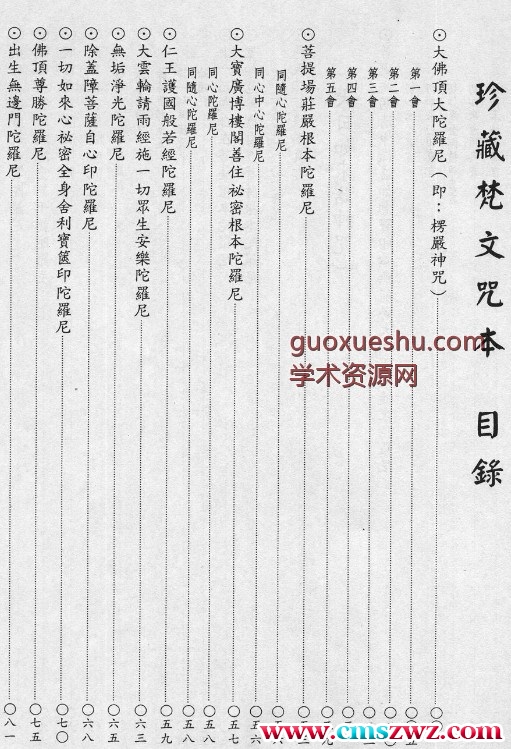 珍藏梵文咒本 目錄
⊙大佛頂大陀羅尼（即：楞嚴神咒）
第一會
第二會
第三會
第四會
第五會
⊙菩提場莊嚴根本陀羅尼
同隨心陀羅尼
同心中心陀羅尼 ○五六
⊙大寶廣博樓閣善住祕密根本陀羅尼 ○五七
同心陀羅尼 ○五八
同隨心陀羅尼 ○五八
⊙仁王護國般若經陀羅尼 ○五九
⊙大雲輪請雨經施一切眾生安樂陀羅尼 ○六三
⊙無垢淨光陀羅尼 ○六五
⊙除蓋障菩薩自心印陀羅尼 ○六八
⊙一切如來心祕密全身舍利寶篋印陀羅尼 ○七○
⊙佛頂尊勝陀羅尼 ○七五
⊙出生無邊門陀羅尼 ○八一
guoxueshu.com
学术资源网
www.cmszwz.com